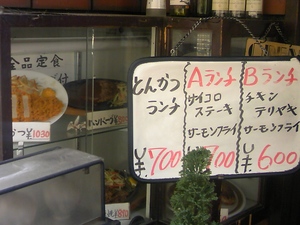 全品定食
付
¥1030
¥810
とんかつ
ランチ
¥700
Aランチ
サイコロ
ステーキ
サーモンフライ
¥700
Bランチ
チキン
テリヤキ
サーモンフライ
¥600